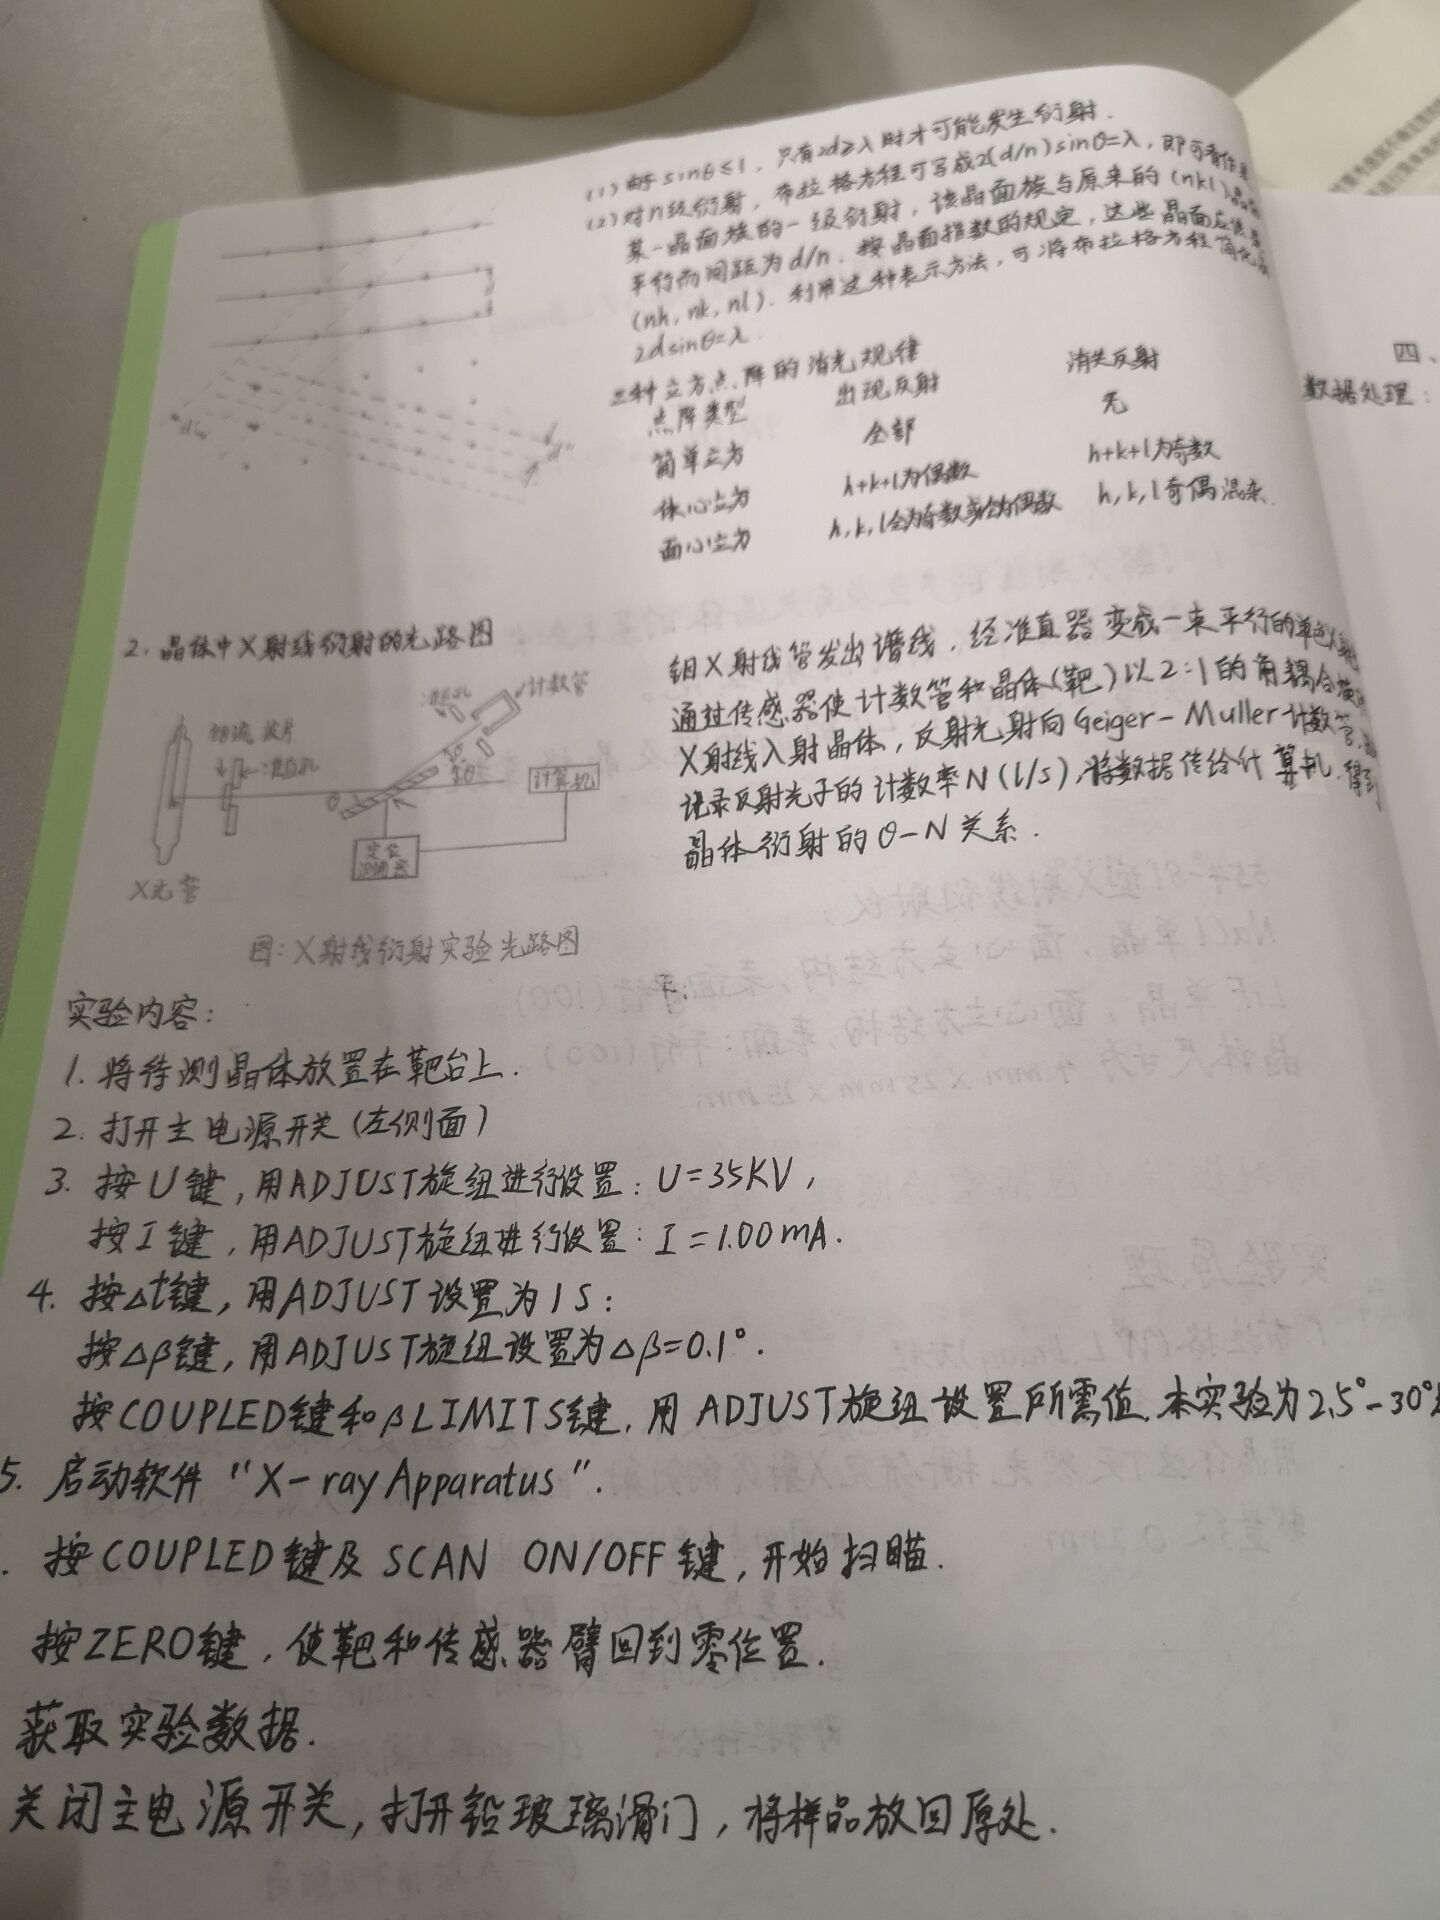 (1) 由于sinθ≤1，只有2d≥λ时才可能发生衍射.
(2) 对n级衍射，布拉格方程可写成2(d/n)sinθ=λ，即可看作是
某一晶面族的一级衍射，该晶面族与原来的(hkl)晶面
平行而间距为d/n. 按晶面指数的规定，这些晶面应该是
(nh, nk, nl). 利用这种表示方法，可将布拉格方程简化为
2dsinθ=λ.
三种立方点阵的消光规律
点阵类型 出现反射 消失反射
简单立方 全部 无
体心立方 h+k+l为偶数 h+k+l为奇数
面心立方 h,k,l全为奇数或全为偶数 h,k,l奇偶混杂.
四、
数据处理：
2. 晶体中X射线衍射的光路图
计数管
滤片
准直孔
θ
计算机
定位
X光管
图：X射线衍射实验光路图
钼X射线管发出谱线，经准直器变成一束平行的单色X射线
通过传感器使计数管和晶体(靶)以2:1的角耦合
X射线入射晶体，反射光射向Geiger-Muller计数管，
记录反射光子的计数率N(1/s)，将数据传给计算机，得到
晶体衍射的θ-N关系.
实验内容：
1. 将待测晶体放置在靶台上.
2. 打开主电源开关(左侧面)
3. 按U键，用ADJUST旋纽进行设置：U=35KV，
按I键，用ADJUST旋纽进行设置：I=1.00mA.
4. 按Δt键，用ADJUST设置为1S：
按Δβ键，用ADJUST旋纽设置为Δβ=0.1°.
按COUPLED键和βLIMITS键，用ADJUST旋纽设置所需值，本实验为2.5°-30°
5. 启动软件“X-ray Apparatus”.
. 按COUPLED键及SCAN ON/OFF键，开始扫瞄.
按ZERO键，使靶和传感器臂回到零位置.
获取实验数据.
关闭主电源开关，打开铅玻璃滑门，将样品放回原处.